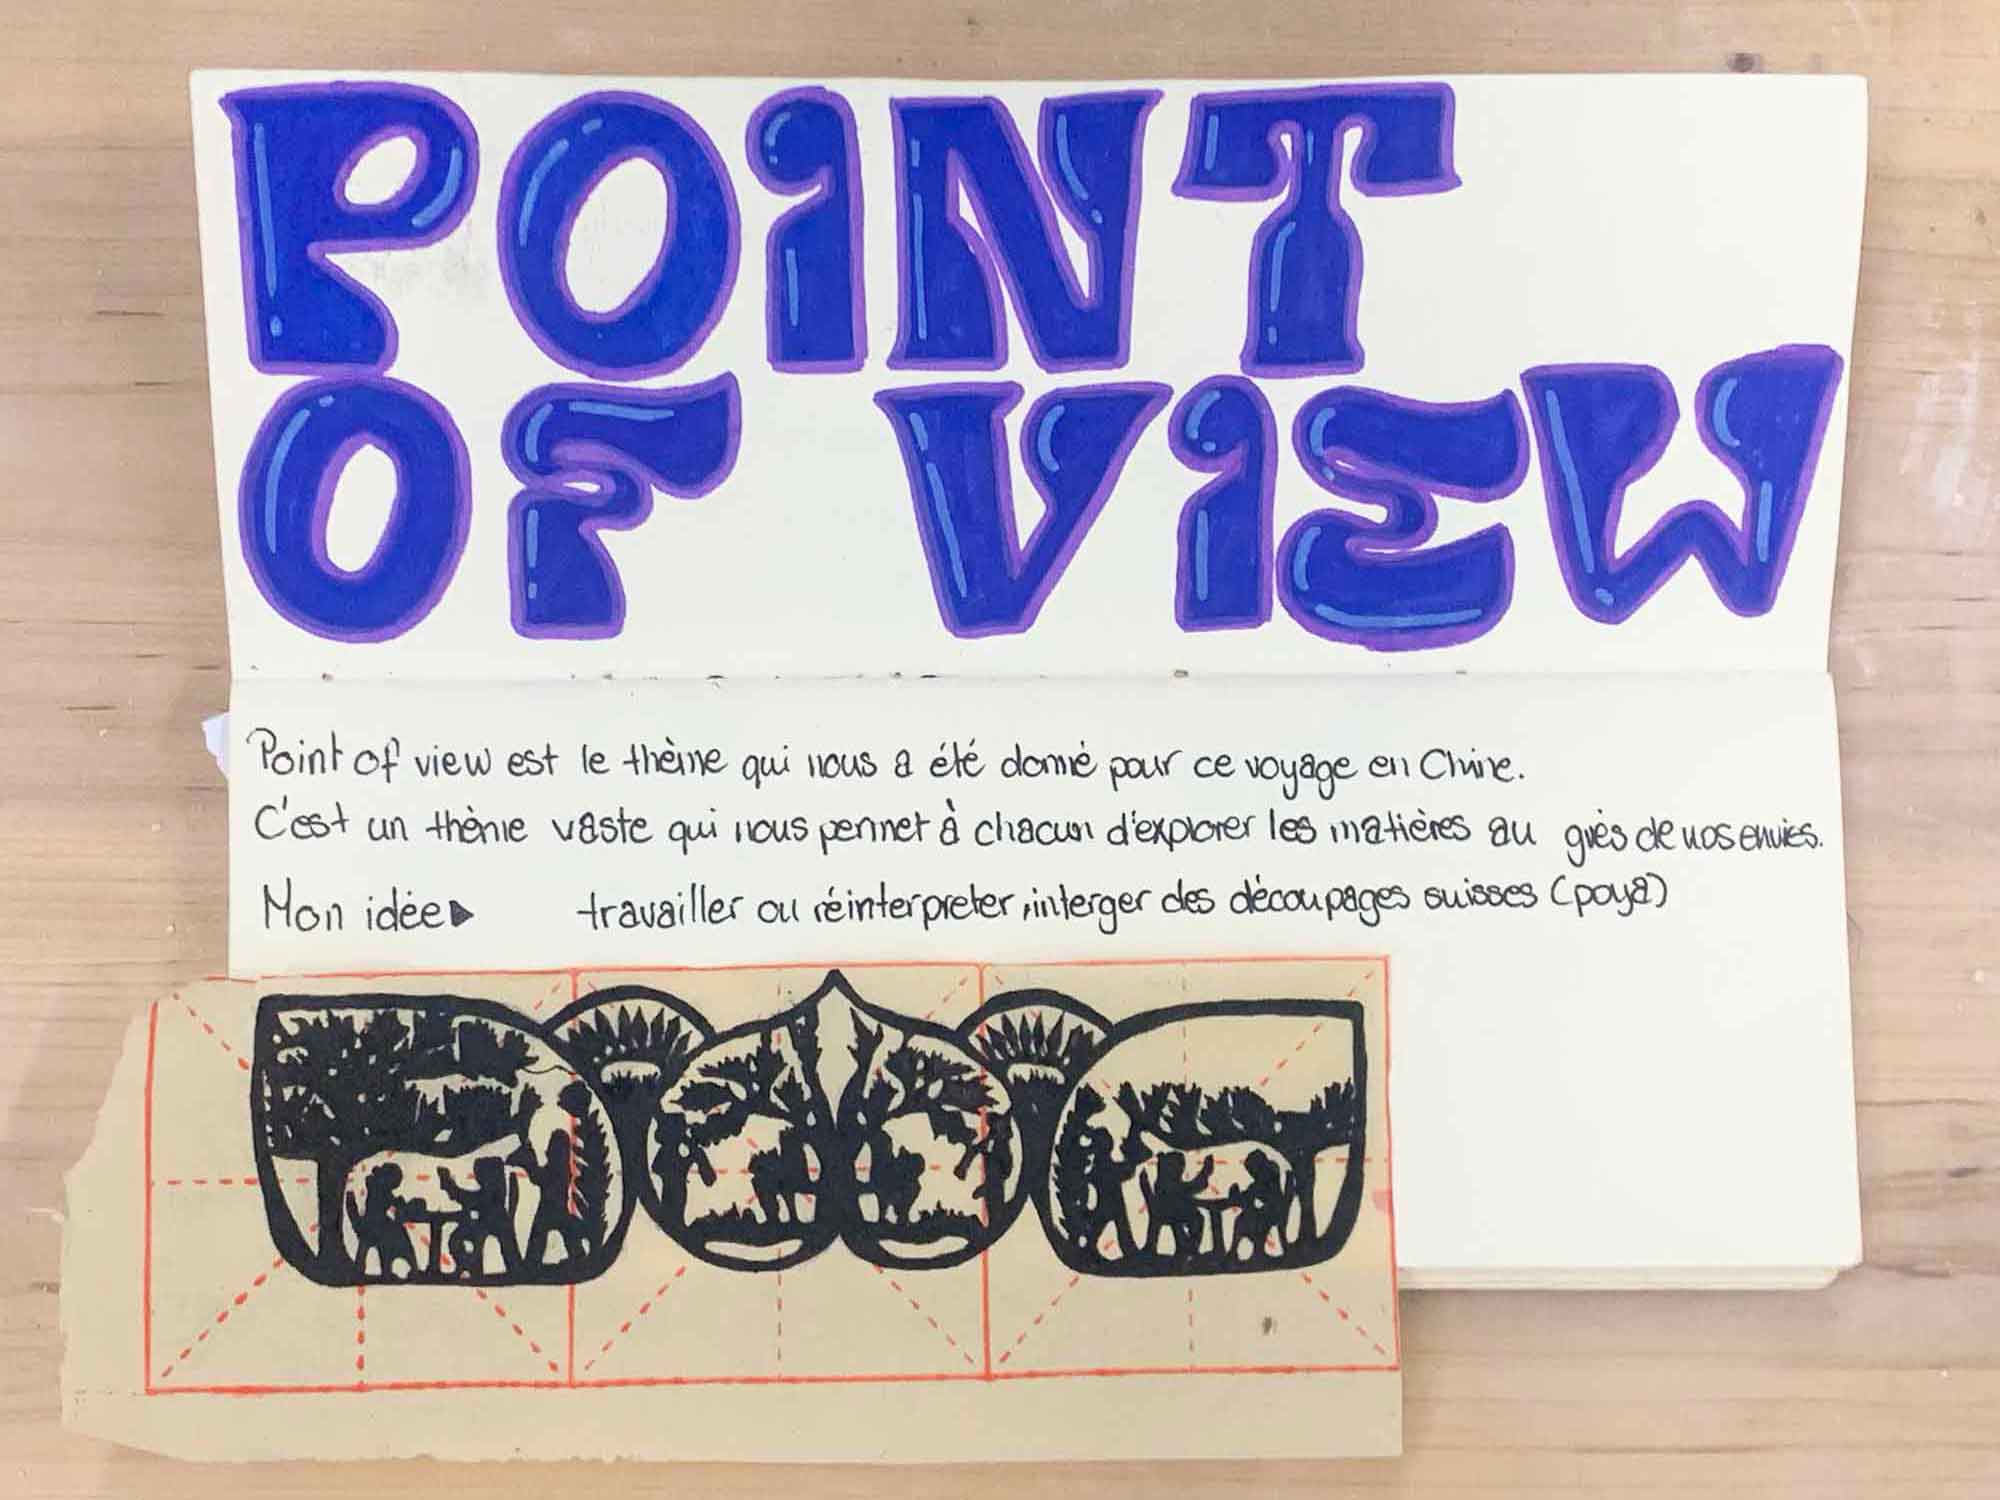 POINT
OF VIEW
Point of view est le thème qui nous a été donné pour ce voyage en Chine.
C'est un thème vaste qui nous permet à chacun d'explorer les matières au grès de nos envies.
Mon idée▶ travailler ou réinterpreter, interger des découpages suisses (poya)